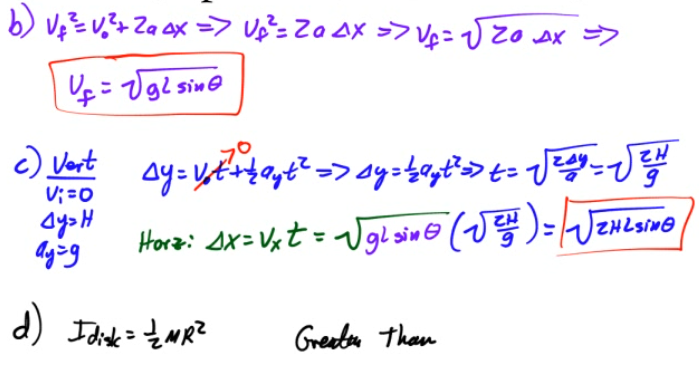 b) V_f² = V_0² + 2a Δx => V_f² = 2a Δx => V_f = √(2a Δx) =>
V_f = √(gL sinθ)
c) Vert Δy = V_0t + ½a_yt² => Δy = ½a_yt² => t = √(2Δy/a) = √(2H/g)
→0
V_i=0
Δy=H
a_y=g
Horz: Δx = V_x t = √(gL sinθ) (√(2H/g)) = √(2HL sinθ)
d) I_disk = ½MR² Greater than